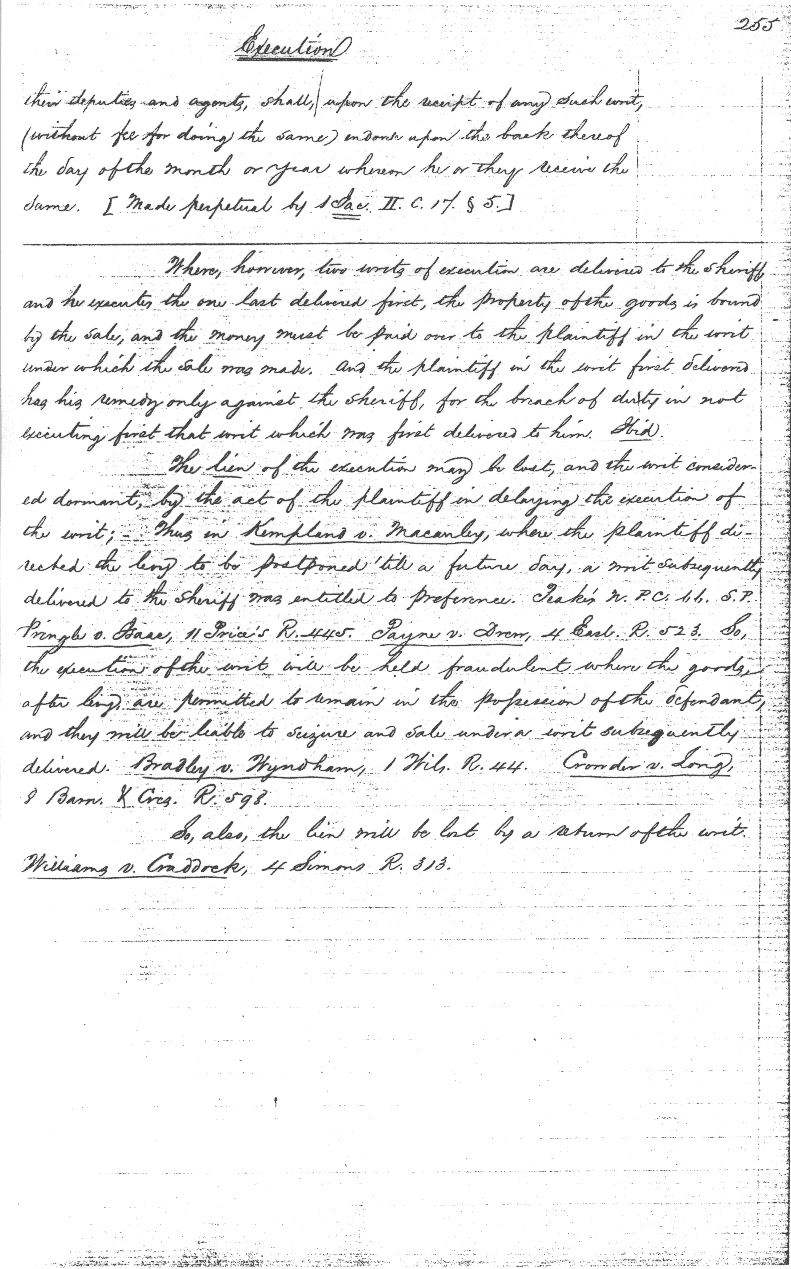 255
Execution
their deputies and agents, shall, upon the receipt of any such writ,
(without fee for doing the same) endorse upon the back thereof
the day of the month or year whereon he or they receive the
same. [Made perpetual by 1 Jac. II. C. 17. § 5.]
Where, however, two writs of execution are delivered to the Sheriff
and he executes the one last delivered first, the property of the goods is bound
by the sale, and the money must be paid over to the plaintiff in the writ
under which the sale was made. And the plaintiff in the writ first delivered
has his remedy only against the sheriff, for the breach of duty in not
executing first that writ which was first delivered to him. Ibid.
The lien of the execution may be lost, and the writ consider-
ed dormant, by the act of the plaintiff in delaying the execution of
the writ; – Thus in Kempland v. Macauley, where the plaintiff di-
rected the levy to be postponed 'till a future day, a writ subsequently
delivered to the Sheriff was entitled to preference. Peake's N. P. C. 66. S. P.
Pringle v. Isaac, 11 Price's R. 445. Payne v. Drew, 4 East. R. 523. So,
the execution of the writ will be held fraudulent where the goods,
after levy are permitted to remain in the possession of the defendant,
and they will be liable to seizure and sale under a writ subsequently
delivered. Bradley v. Wyndham, 1 Wils. R. 44. Crowder v. Long,
8 Barn. & Cres. R. 598.
So, also, the lien will be lost by a return of the writ.
Williams v. Craddock, 4 Simons R. 313.